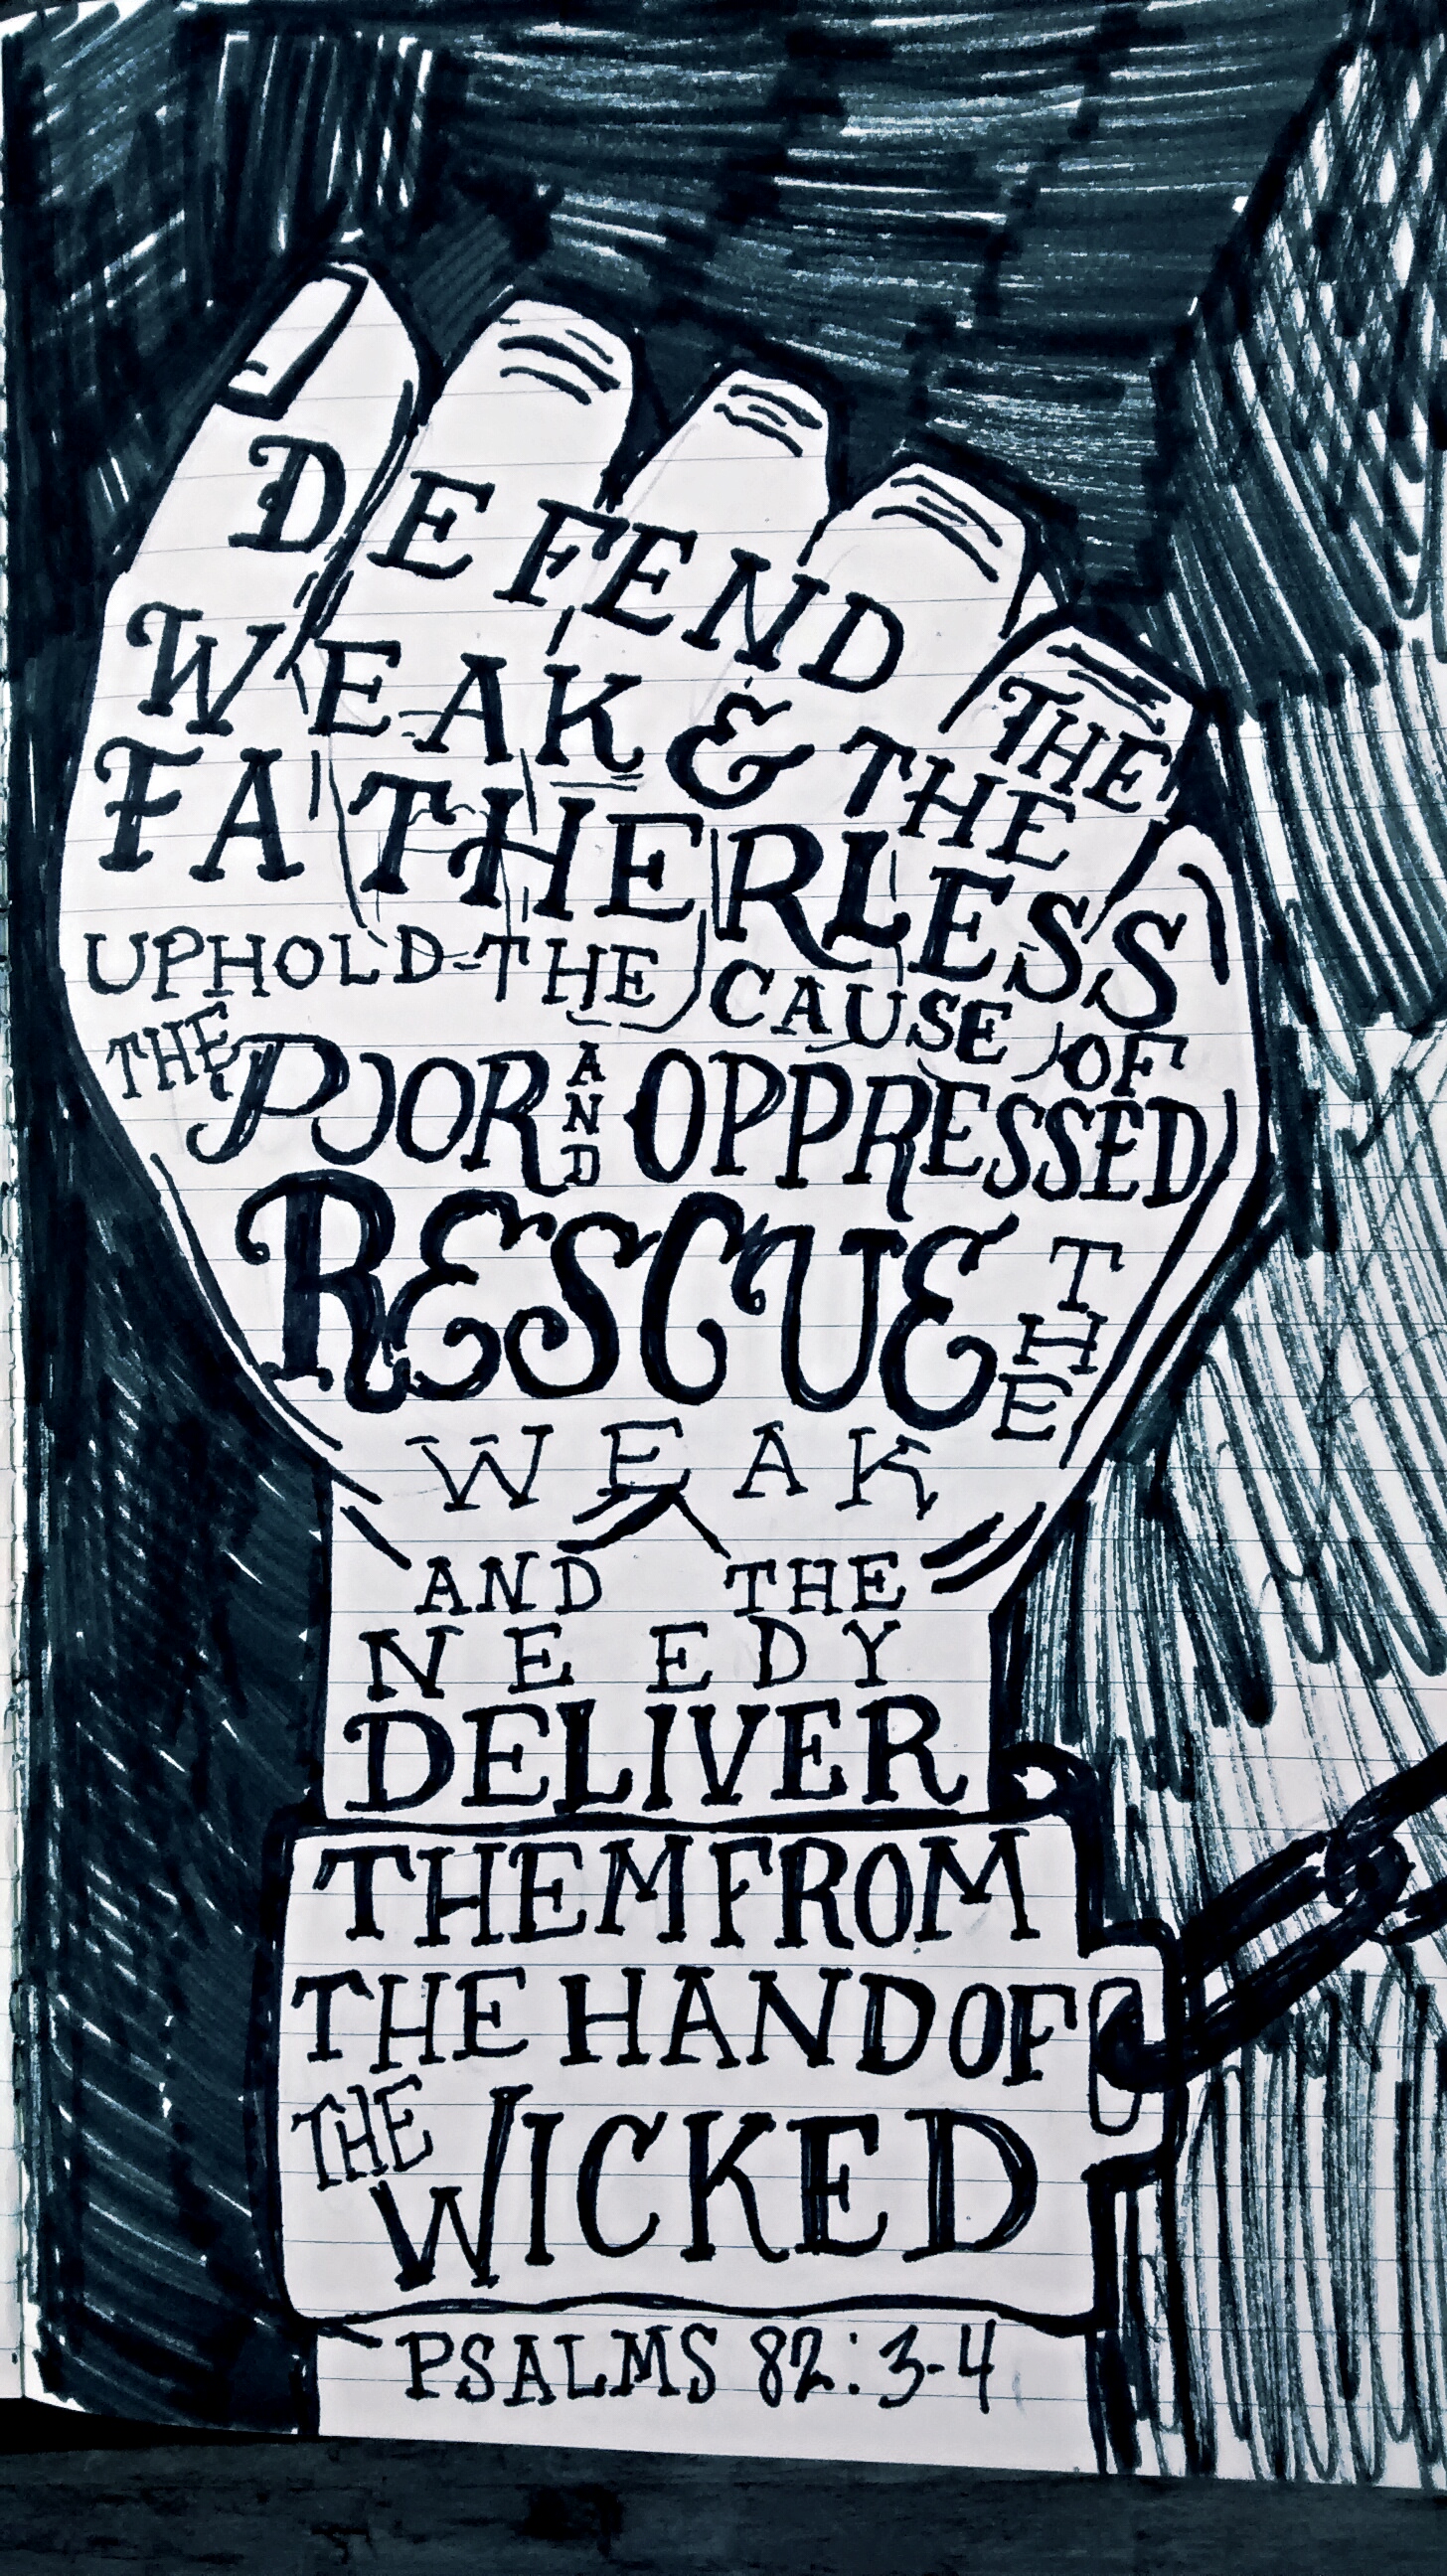 DEFEND THE
WEAK & THE
FATHERLESS
UPHOLD THE CAUSE OF
THE POOR AND OPPRESSED
RESCUE THE
WEAK
AND THE
NEEDY
DELIVER
THEM FROM
THE HAND OF
THE WICKED
PSALMS 82:3-4